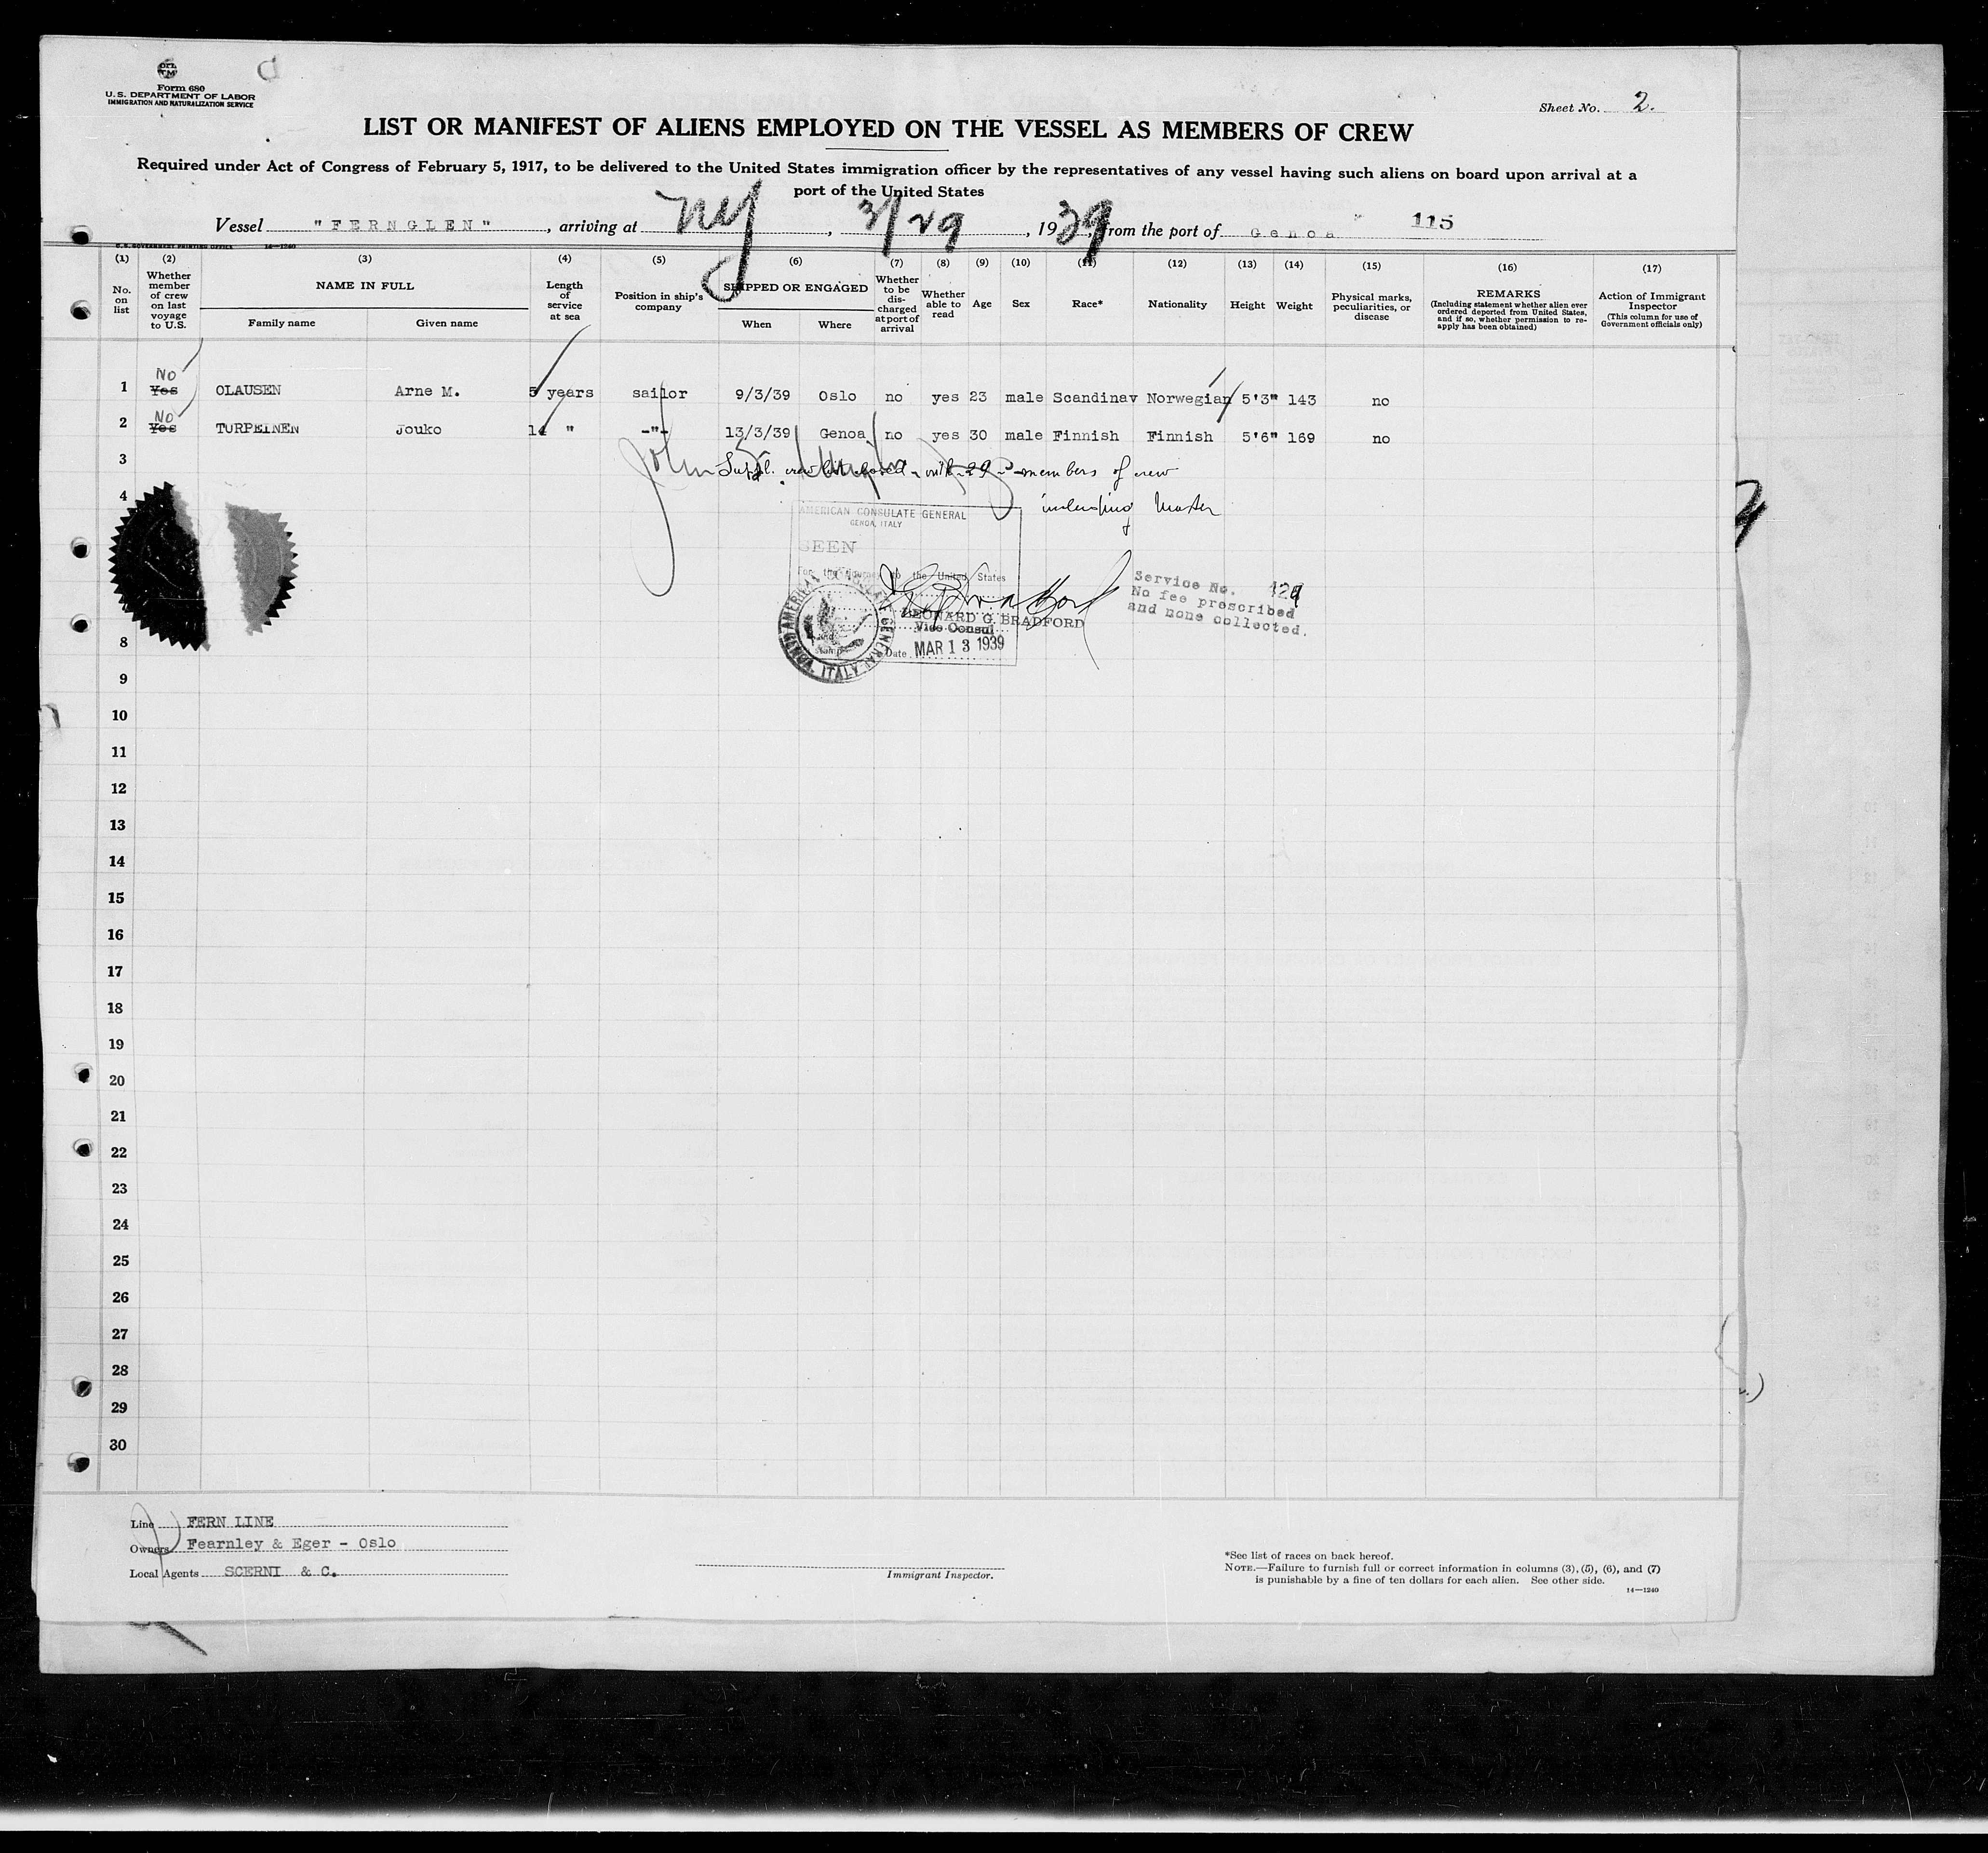 Form 680
U. S. DEPARTMENT OF LABOR
IMMIGRATION AND NATURALIZATION SERVICE
Sheet No. 2.
LIST OR MANIFEST OF ALIENS EMPLOYED ON THE VESSEL AS MEMBERS OF CREW
Required under Act of Congress of February 5, 1917, to be delivered to the United States immigration officer by the representatives of any vessel having such aliens on board upon arrival at a
port of the United States
Vessel "FERNGLEN", arriving at NY, 3/29, 1939, from the port of Genoa 115
U.S. GOVERNMENT PRINTING OFFICE 14—1240
(1) (2) (3) (4) (5) (6) (7) (8) (9) (10) (11) (12) (13) (14) (15) (16) (17)
No. on list
Whether member of crew on last voyage to U.S.
NAME IN FULL
Family name
Given name
Length of service at sea
Position in ship's company
SHIPPED OR ENGAGED
When
Where
Whether to be discharged at port of arrival
Whether able to read
Age
Sex
Race*
Nationality
Height
Weight
Physical marks, peculiarities, or disease
REMARKS
(Including statement whether alien ever ordered deported from United States, and if so, whether permission to reapply has been obtained)
Action of Immigrant Inspector
(This column for use of Government officials only)
No
1 Yes OLAUSEN Arne M. 5 years sailor 9/3/39 Oslo no yes 23 male Scandinav Norwegian 5'3" 143 no
No
2 Yes TURPEINEN Jouko 14 " -"- 13/3/39 Genoa no yes 30 male Finnish Finnish 5'6" 169 no
3 Suppl. crew list closed - with 29 - members of crew
4 including Master
AMERICAN CONSULATE GENERAL
GENOA, ITALY
SEEN
For the journey to the United States
LEONARD G. BRADFORD
Vice Consul
Date MAR 13 1939
AMERICAN CONSULATE GENERAL
GENOA, ITALY
Service No. 129
No fee prescribed
and none collected.
8
9
10
11
12
13
14
15
16
17
18
19
20
21
22
23
24
25
26
27
28
29
30
Line FERN LINE
Owners Fearnley & Eger - Oslo
Local Agents SCERNI & C.
Immigrant Inspector.
*See list of races on back hereof.
NOTE.—Failure to furnish full or correct information in columns (3), (5), (6), and (7)
is punishable by a fine of ten dollars for each alien. See other side.
14—1240